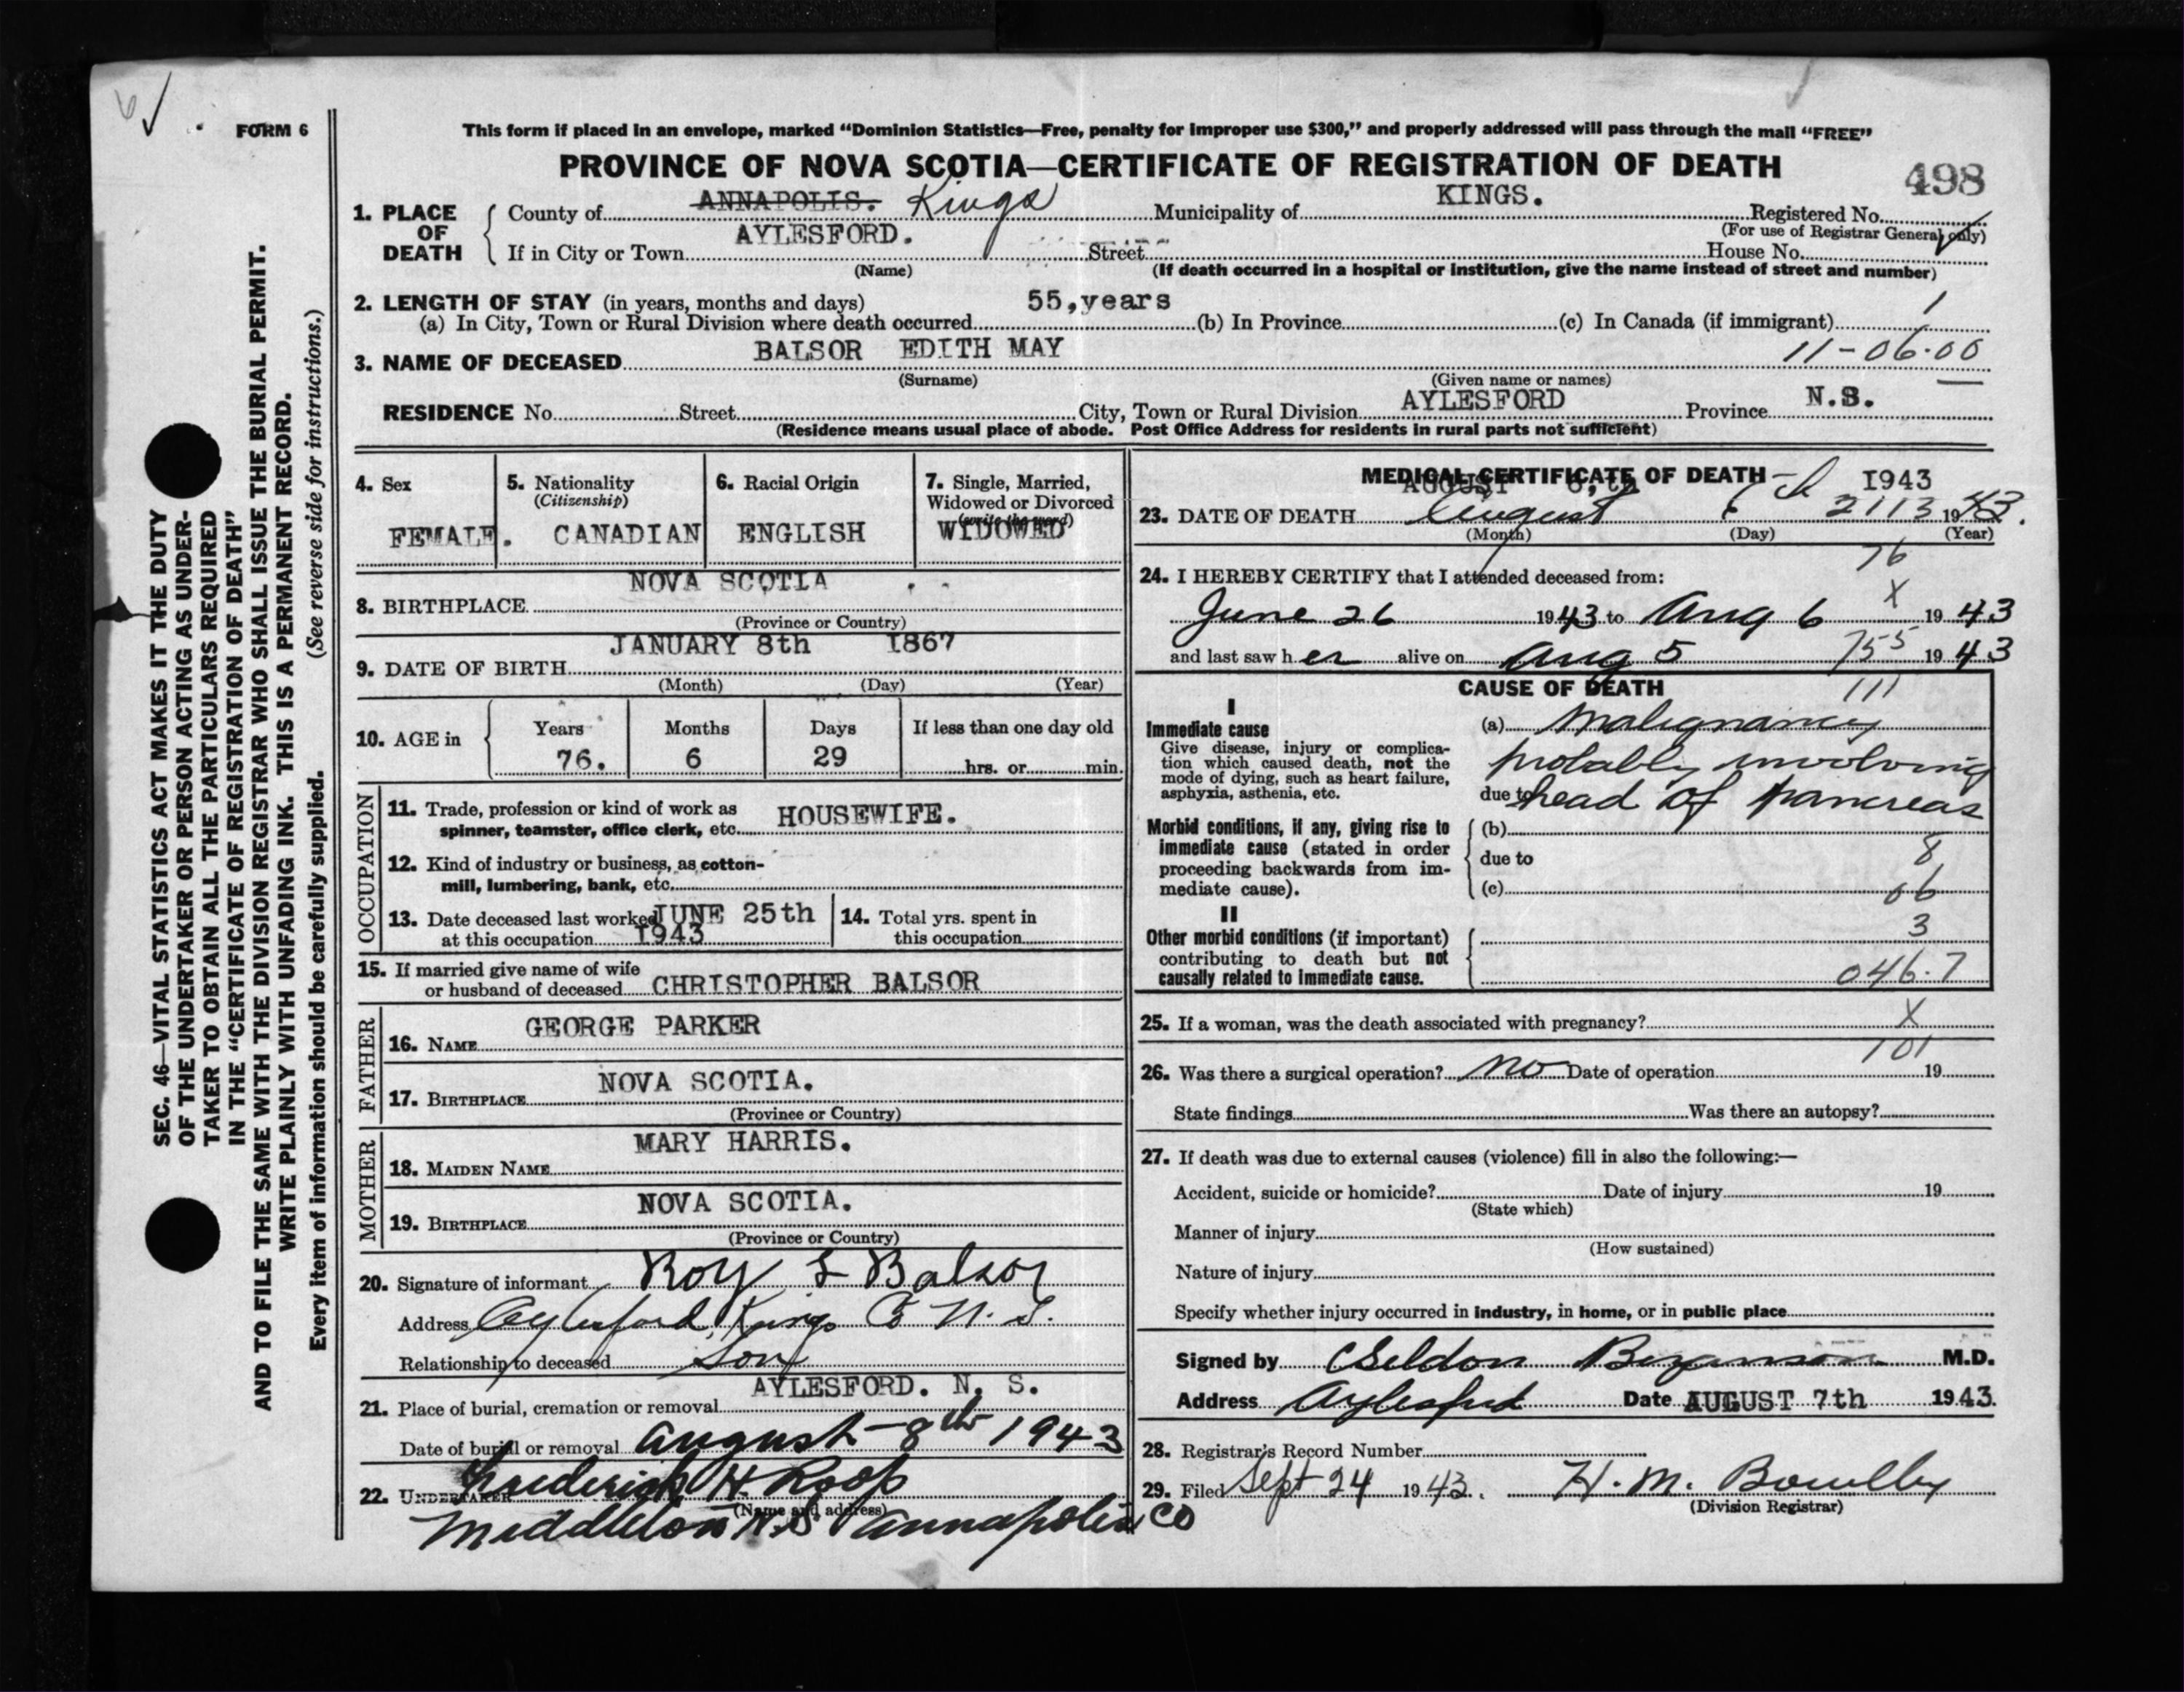 FORM 6
This form if placed in an envelope, marked “Dominion Statistics—Free, penalty for improper use $300,” and properly addressed will pass through the mail “FREE”
PROVINCE OF NOVA SCOTIA—CERTIFICATE OF REGISTRATION OF DEATH
498
1. PLACE OF DEATH
County of ANNAPOLIS. Kings Municipality of KINGS. Registered No.
(For use of Registrar General only)
If in City or Town AYLESFORD. Street House No.
(Name) (If death occurred in a hospital or institution, give the name instead of street and number)
2. LENGTH OF STAY (in years, months and days)
(a) In City, Town or Rural Division where death occurred 55,years (b) In Province (c) In Canada (if immigrant) 1
3. NAME OF DECEASED BALSOR EDITH MAY 11-06.00
(Surname) (Given name or names)
RESIDENCE No. Street City, Town or Rural Division AYLESFORD Province N.S.
(Residence means usual place of abode. Post Office Address for residents in rural parts not sufficient)
4. Sex
FEMALE.
5. Nationality
(Citizenship)
CANADIAN
6. Racial Origin
ENGLISH
7. Single, Married,
Widowed or Divorced
(write the word)
WIDOWED
8. BIRTHPLACE NOVA SCOTIA
(Province or Country)
9. DATE OF BIRTH JANUARY 8th 1867
(Month) (Day) (Year)
10. AGE in
Years Months Days If less than one day old
76. 6 29 hrs. or min.
OCCUPATION
11. Trade, profession or kind of work as
spinner, teamster, office clerk, etc. HOUSEWIFE.
12. Kind of industry or business, as cotton-
mill, lumbering, bank, etc.
13. Date deceased last worked JUNE 25th
at this occupation 1943
14. Total yrs. spent in
this occupation
15. If married give name of wife
or husband of deceased CHRISTOPHER BALSOR
FATHER
16. NAME GEORGE PARKER
17. BIRTHPLACE NOVA SCOTIA.
(Province or Country)
MOTHER
18. MAIDEN NAME MARY HARRIS.
19. BIRTHPLACE NOVA SCOTIA.
(Province or Country)
20. Signature of informant Roy L Balsor
Address Aylesford, Kings Co N.S.
Relationship to deceased Son
21. Place of burial, cremation or removal AYLESFORD. N. S.
Date of burial or removal August-8th 1943
22. UNDERTAKER Frederick H. Roop
(Name and address)
Middleton N.S Annapolis Co
MEDICAL CERTIFICATE OF DEATH
AUGUST 6,th 1943
23. DATE OF DEATH August 6 2113 1943.
(Month) (Day) (Year)
76
24. I HEREBY CERTIFY that I attended deceased from:
X
June 26 1943 to Aug 6 1943
and last saw h er alive on Aug 5 755 1943
CAUSE OF DEATH 111
I
Immediate cause
Give disease, injury or complica-
tion which caused death, not the
mode of dying, such as heart failure,
asphyxia, asthenia, etc.
(a) Malignancy
probably involving
due to head of pancreas
Morbid conditions, if any, giving rise to
immediate cause (stated in order
proceeding backwards from im-
mediate cause).
(b)
due to 8
(c) 06
II
Other morbid conditions (if important)
contributing to death but not
causally related to immediate cause.
3
046.7
25. If a woman, was the death associated with pregnancy? X
101
26. Was there a surgical operation? No Date of operation 19
State findings Was there an autopsy?
27. If death was due to external causes (violence) fill in also the following:—
Accident, suicide or homicide? Date of injury 19
(State which)
Manner of injury
(How sustained)
Nature of injury
Specify whether injury occurred in industry, in home, or in public place
Signed by Seldon Bezanson M.D.
Address Aylesford Date AUGUST 7th 1943.
28. Registrar's Record Number
29. Filed Sept 24 1943. H. M. Bowlby
(Division Registrar)
SEC. 46—VITAL STATISTICS ACT MAKES IT THE DUTY
OF THE UNDERTAKER OR PERSON ACTING AS UNDER-
TAKER TO OBTAIN ALL THE PARTICULARS REQUIRED
IN THE “CERTIFICATE OF REGISTRATION OF DEATH”
AND TO FILE THE SAME WITH THE DIVISION REGISTRAR WHO SHALL ISSUE THE BURIAL PERMIT.
WRITE PLAINLY WITH UNFADING INK. THIS IS A PERMANENT RECORD.
Every item of information should be carefully supplied. (See reverse side for instructions.)